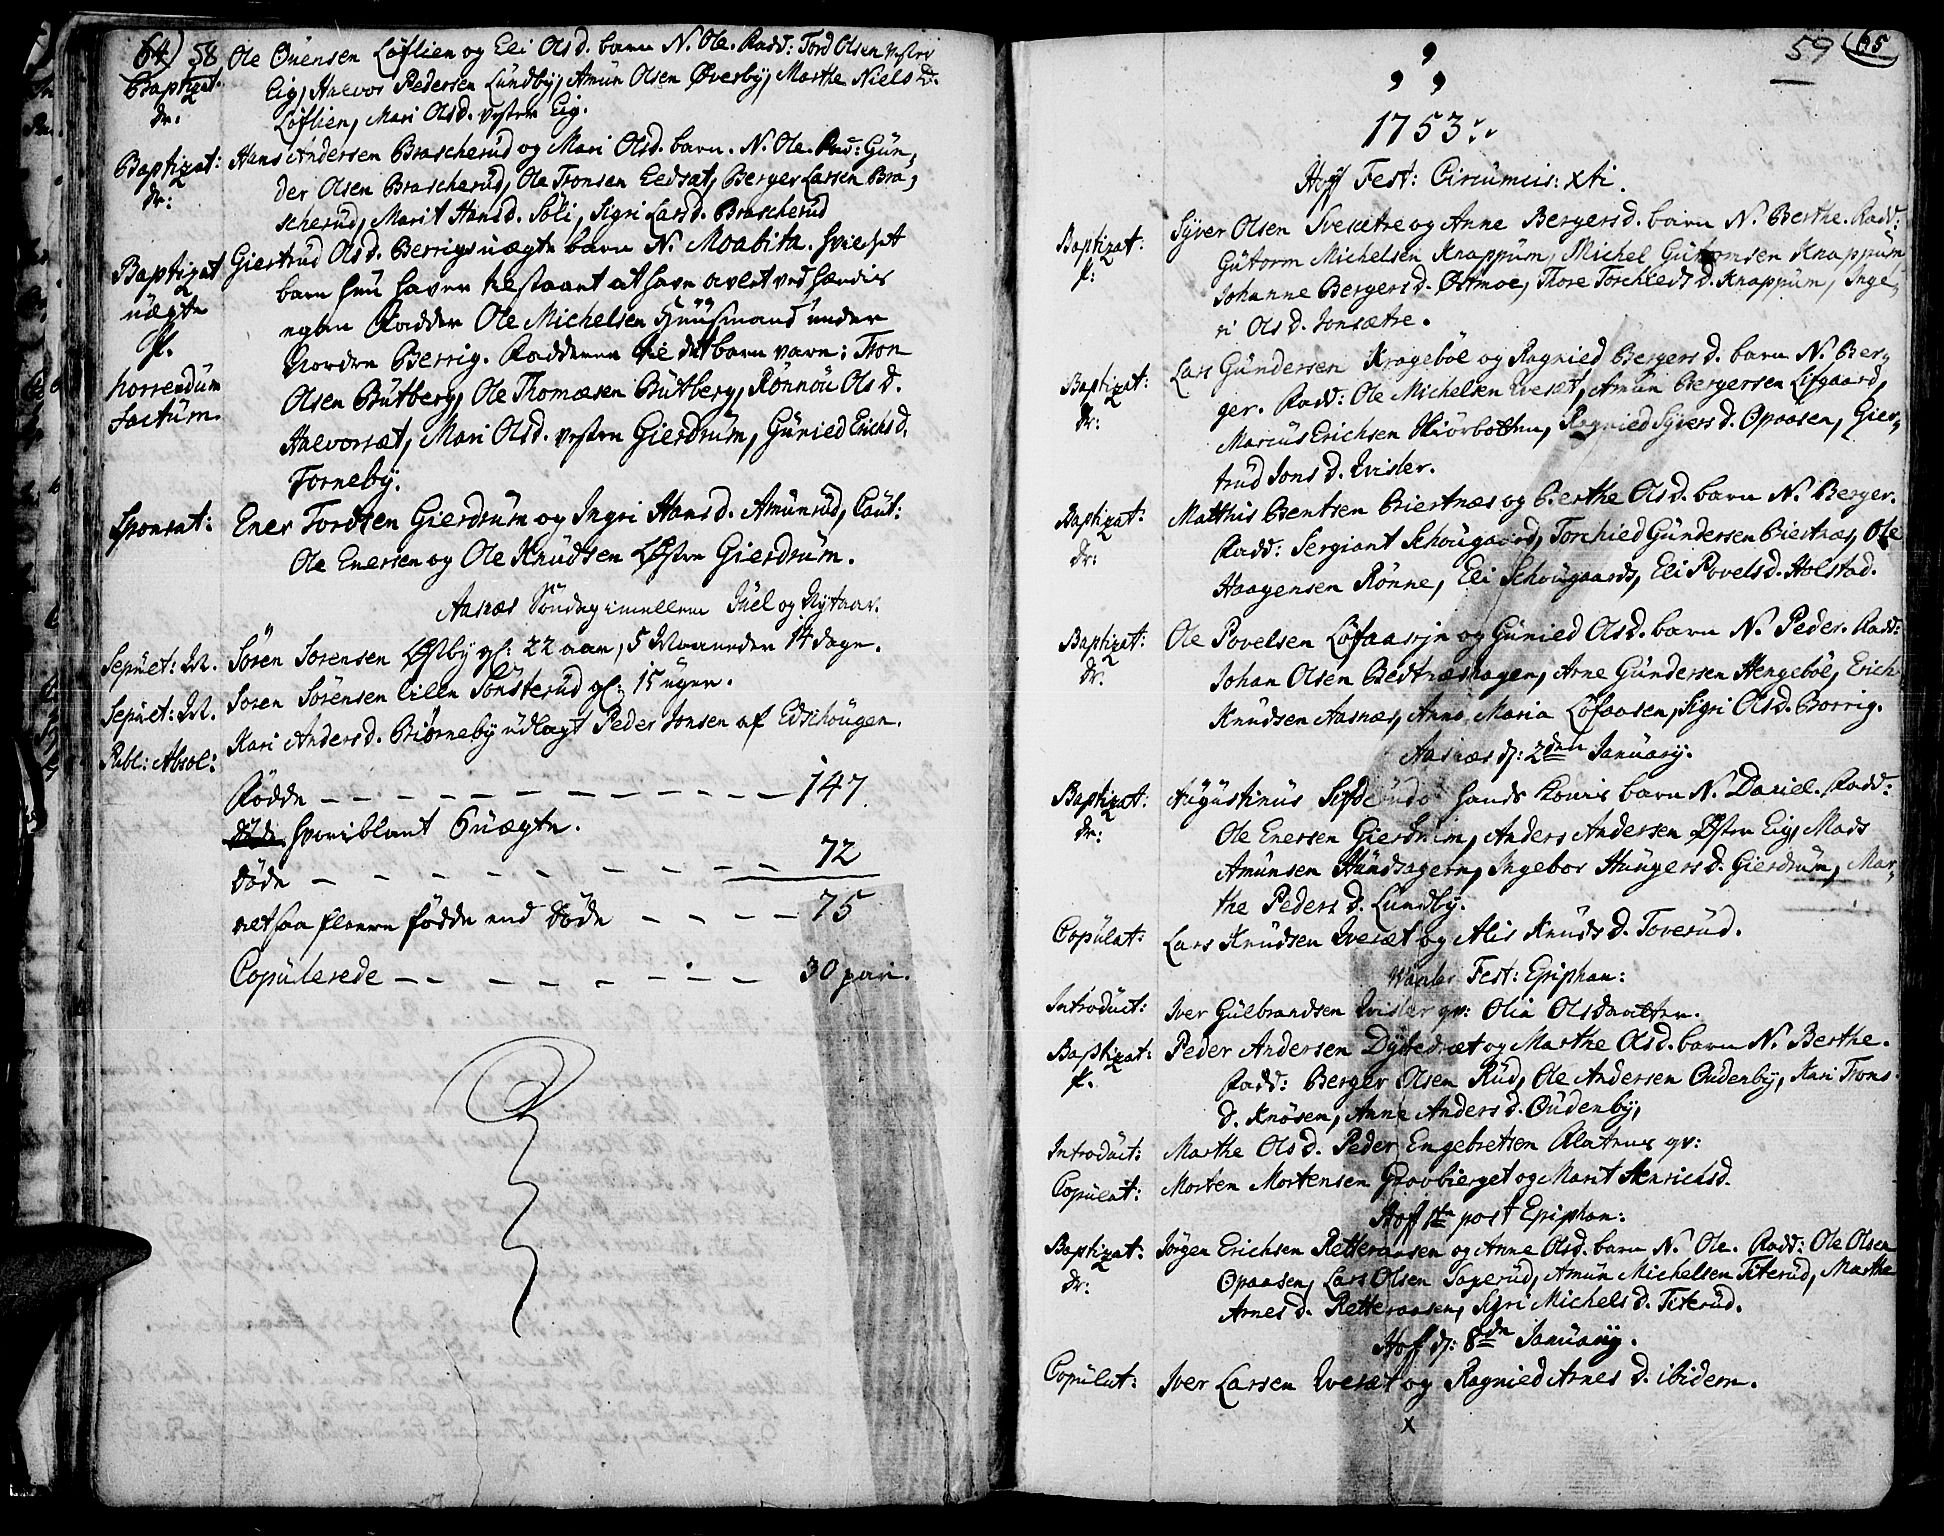 64) 58
Baptizat: dr: Ole Ouensen Løflien og Eli Olsd. barn N. Ole. Fadd: Tord Olsen vestre
Eig, Halvor Pedersen Lündbÿ, Amün Olsen Øverbÿ, Marthe Niels d.
Løflien, Mari Olsd. vestre Eig.
Baptizat: dr: Hans Andersen Brascherüd og Mari Olsd. barn. N. Ole. Fad: Gün,
der Olsen Brascherüd, Ole Tronsen Eedsæt, Berger Larsen Bra,
scherüd, Marit Hansd. Söli, Sigri Larsd. Brascherüd
Baptizat uægte f. Giertrud Olsd. Berrigs uægte barn N. Moabita. hvilchet
barn hün haver tilstaaet at have avlet ved hendes
egen Fadder Ole Michelsen Hüüsmand under
Nordre Berrig. Fadderne til det barn vare: Tron
horrendum factüm. Olsen Bütberg, Ole Thomæsen Bütberg, Rönnöü Ols d.
Halvorsæt, Mari Olsd. vestre Gierdrüm, Günied Erichsd.
Fornebÿ.
Sponsat: Ener Tordsen Gierdrüm og Ingri Hans d. Amünrüd, Caut:
Ole Enersen og Ole Knudtsen Østre Gierdrüm.
Aasnæs Söndag imellem Jüel og Nÿtaar.
Sepült: M. Sören Sorensen Østbÿ gl: 22 aar, 5 Maaneder 14 dage.
Sepült: M. Soren Sörensen lille Sönsterüd gl: 15 uger.
Publ: Absol: Kari Andersd. Biörnebÿ udlagt Peder Jonsen af Edschöugen.
Födde — — — — — — — — — 147.
hvoriblant 6 uægte.
Döde — — — — — — — — — 72
altsaa fleere födde end döde — — — — 75
Copülerede — — — — — — — — 30 par.
59 65
1753.
Hoff Fest: Circumcis: xti.
Baptizat: f: Syver Olsen Svesætre og Anne Bergersd. barn N. Berthe. Fadd:
Gütorm Michelsen Knappüm, Michel Gütormsen Knappüm,
Johanne Bergersd. Østmoe, Thore Torchelds d. Knappüm, Inge,
ri Ols d. Jonsætre.
Baptizat: dr: Lars Gündersen Krageböe og Ragnied Bergers d. barn N. Ber,
ger. Fadd: Ole Michelsen Qvesæt, Amün Bergersen Lifgaard,
Marcüs Erichsen Kiörbotten, Ragnied Sÿvers d. Opaasen, Gier,
trud Jons d. Qvisler.
Baptizat: dr: Matthis Bentsen Biertnæs og Berthe Olsd. barn N. Berger.
Fadd: Sergiant Schöugaard, Torchied Gündersen Biertnæs, Ole
Haagensen Rönne, Eli Schöugaards, Eli Povelsd. Holstad.
Baptizat: dr: Ole Povelsen Löfaasen og Günied Olsd. barn N. Peder. Fadd:
Johan Olsen Bedtræshagen, Arne Gündersen Hengeböe, Erich
Knüdsen Aasnæs, Anne Maria Löfaasen, Sigri Olsd. Borrig.
Aasnæs d: 2den Janüarÿ.
Baptizat: dr: Augüstinus hands Konis barn N. Daniel. Fadd:
Ole Enersen Gierdrüm, Anders Andersen Østre Eig, Mads
Amünsen Hündsagern, Ingebor Hüngers d. Gierdrüm, Mar,
the Peders d. Lundbÿ.
Copülat: Lars Knüdsen Qvesæt og Alis Knüds d. Toverüd.
Waaler Fest: Epiphan:
Introdüct: Iver Gülbrandsen Qvisler qv: Olia Olsdaatter.
Baptizat: f. Peder Andersen Dÿstedræt og Marthe Olsd. barn N. Berthe.
Fadd: Berger Olsen Rüd, Ole Andersen Oüdenbÿ, Kari Trons
d. Knösen, Anne Anders d. Oüdenbÿ,
Introdüct: Marthe Ols d. Peder Engebretsen Flatnes qv:
Copülat: Morten Mortensen Grovbierget og Marit Henrichsd.
Hoff 1te post Epiphan:
Baptizat: dr: Jörgen Erichsen Retteraasen og Anne Olsd. barn N. Ole. Fadd: Ole Olsen
Opaasen, Lars Olsen Sagerüd, Amün Michelsen Titerüd, Marthe
Arnes d. Retteraasen, Sigri Michels d. Titerüd.
Hoff d: 8de Janüarÿ.
Copülat: Iver Larsen Qvesæt og Ragnied Arnes d. ibidem.
x